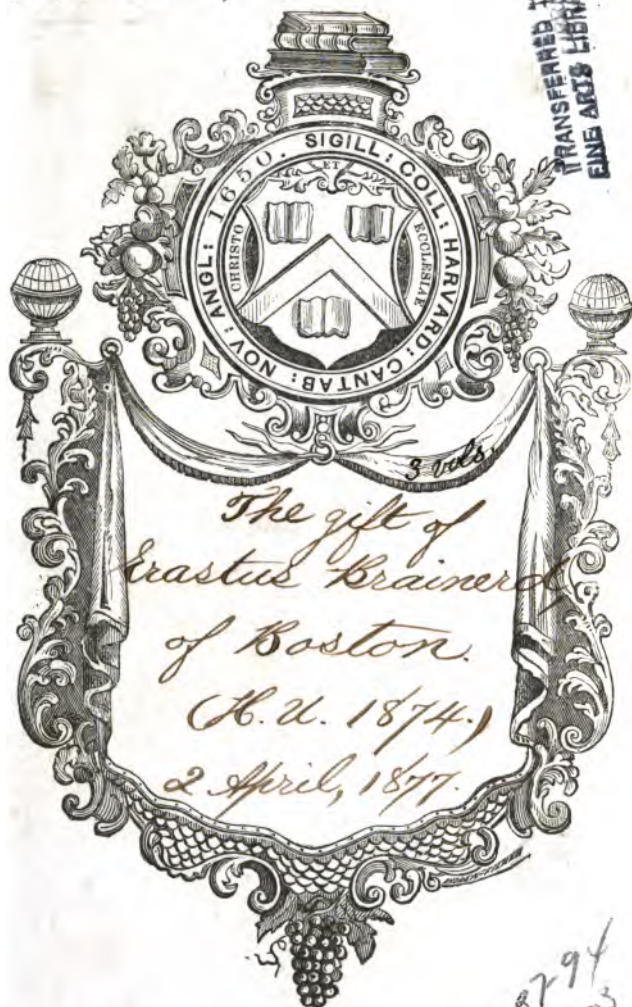 TRANSFERRED
FINE ARTS
SIGILL: COLL: HARVARD: CANTAB: NOV: ANGL: 1650.
ET
CHRISTO
ECCLESIAE
3 vols.
The gift of
Erastus Brainerd,
of Boston.
(H. U. 1874.)
2 April, 1877.
94